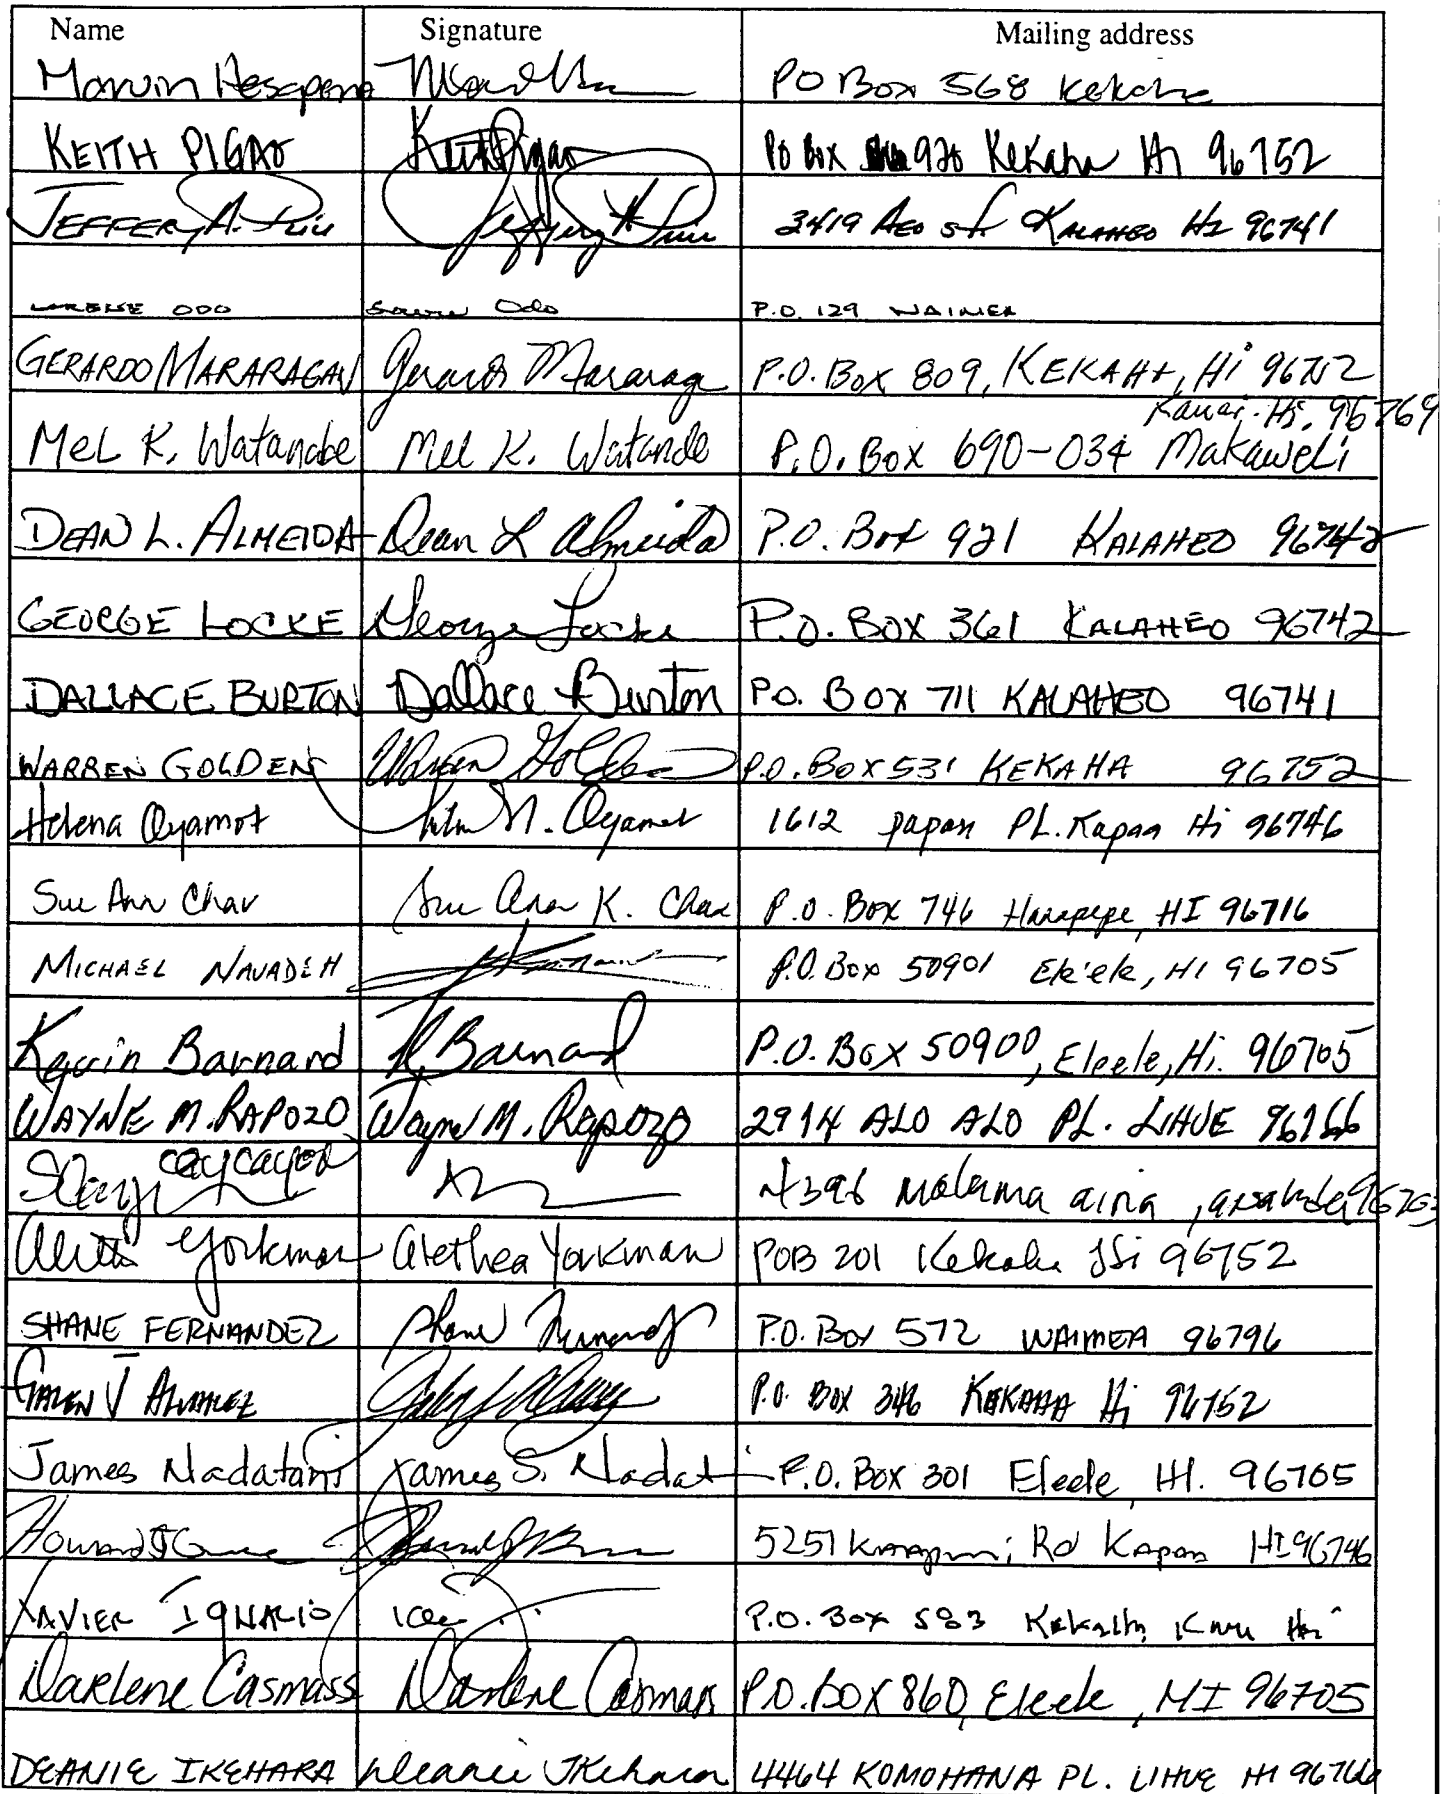 Name Signature Mailing address
Marvin Hesapene PO Box 568 Kekaha
KEITH PIGAO Keith Pigao PO BOX 920 Kekaha Hi 96752
JEFFERY A. Puu Jeffery A Puu 3419 Aeo st. KALAHEO HI 96741
LORENE ODO Odo P.O. 129 WAIMEA
GERARDO MARARAGAN Gerardo Mararaga P.O. Box 809, KEKAHA, Hi 96752
Kauai. Hi. 96769
Mel K. Watanabe Mel K. Watanabe P.O. Box 690-034 Makaweli
DEAN L. ALMEIDA Dean L Almeida P.O. Box 921 KALAHEO 96742
GEORGE LOCKE George Locke P.O. BOX 361 KALAHEO 96742
DALLACE BURTON Dallace Burton P.O. BOX 711 KALAHEO 96741
WARREN GOLDEN Warren Golden P.O. BOX 531 KEKAHA 96752
Helena Oyamot N. Oyamot 1612 papau PL. Kapaa Hi 96746
Sue Ann Chav Sue Ann K. Chav P.O. Box 746 Hanapepe, HI 96716
MICHAEL P.O. Box 50901 Ele'ele, HI 96705
Kevin Barnard K Barnard P.O. Box 50900, Eleele, Hi. 96705
WAYNE M. RAPOZO Wayne M. Rapozo 2974 ALO ALO PL. LIHUE 96766
caycayon 4396 malama aina, anahola 96703
Yorkman Alethea Yorkman POB 201 Kekaha Hi 96752
SHANE FERNANDEZ Shane Fernandez P.O. Box 572 WAIMEA 96796
GALEN J ALVAREZ P.O. BOX 346 KEKAHA Hi 96752
James Nadatani James S. Nadat P.O. BOX 301 Eleele, HI. 96705
Howard 5251 Rd Kapaa HI 96746
XAVIER IGNACIO P.O. Box 583 Kekaha
Darlene Casmass Darlene Casmass P.O. BOX 860, Eleele, HI 96705
DEANIE IKEHARA Deanie Ikehara 4464 KOMOHANA PL. LIHUE HI 96766